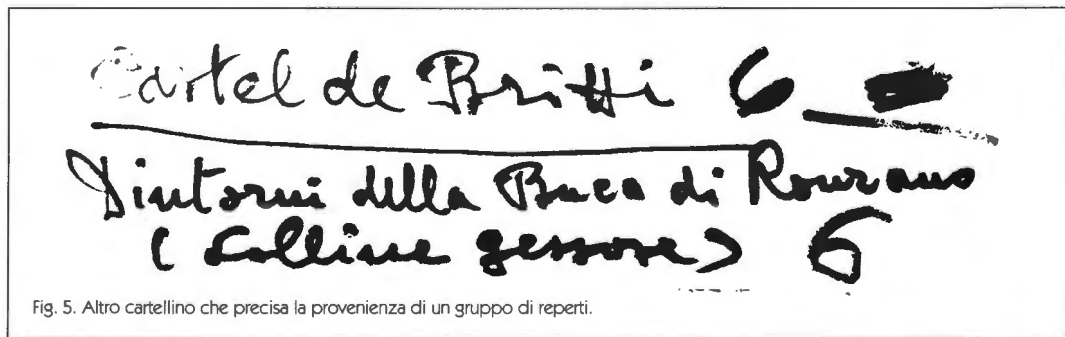 Castel de Britti 6
Dintorni della Buca di Ronzano
(Colline gessose) 6
Fig. 5. Altro cartellino che precisa la provenienza di un gruppo di reperti.